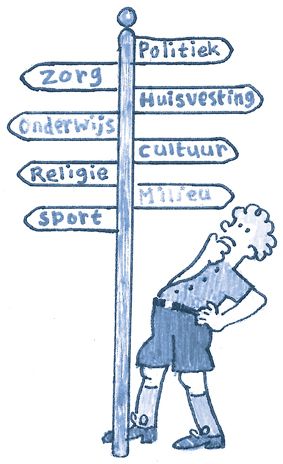 Politiek
Zorg
Huisvesting
Onderwijs
Cultuur
Religie
Milieu
Sport